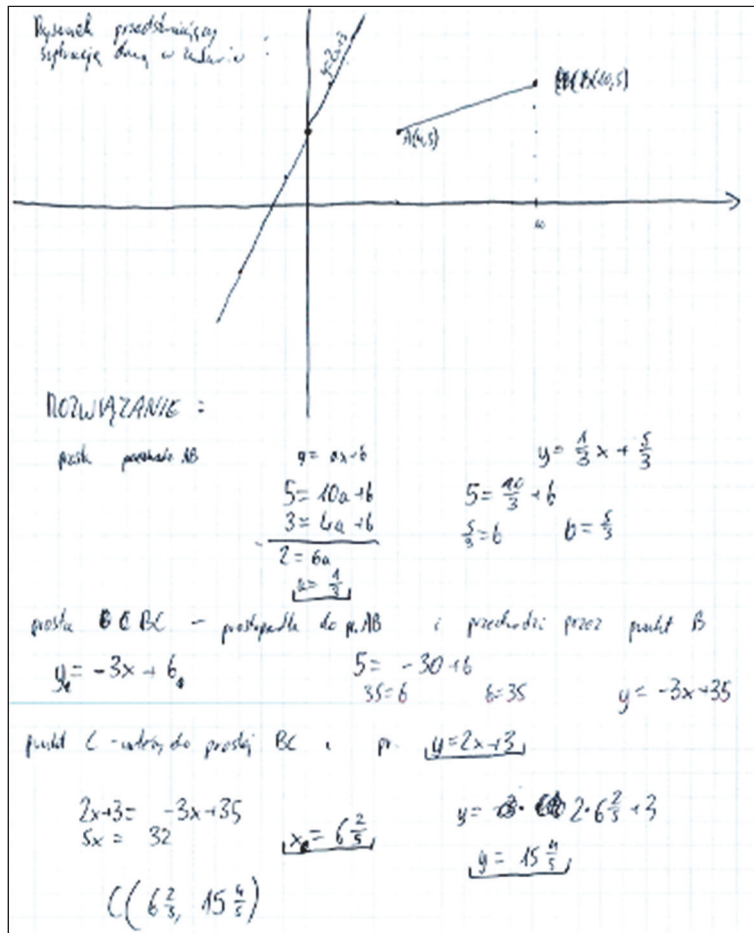 Rysunek przedstawiający
sytuację daną w zadaniu :
y=2x+3
A(4,3)
B(10,5)
10
ROZWIĄZANIE :
prosta AB y = ax+b y = 1/3 x + 5/3
5 = 10a+b 5 = 10/3 + b
3 = 4a+b 5/3 = b b = 5/3
2 = 6a
a = 1/3
prosta BC - prostopadła do pr. AB i przechodzi przez punkt B
y = -3x + b 5 = -30+b
35=b b=35 y = -3x+35
punkt C - należy do prostej BC i pr. y=2x+3
2x+3 = -3x+35 y = 2·6 2/5 +3
5x = 32 x = 6 2/5
y = 15 4/5
C( 6 2/5, 15 4/5 )